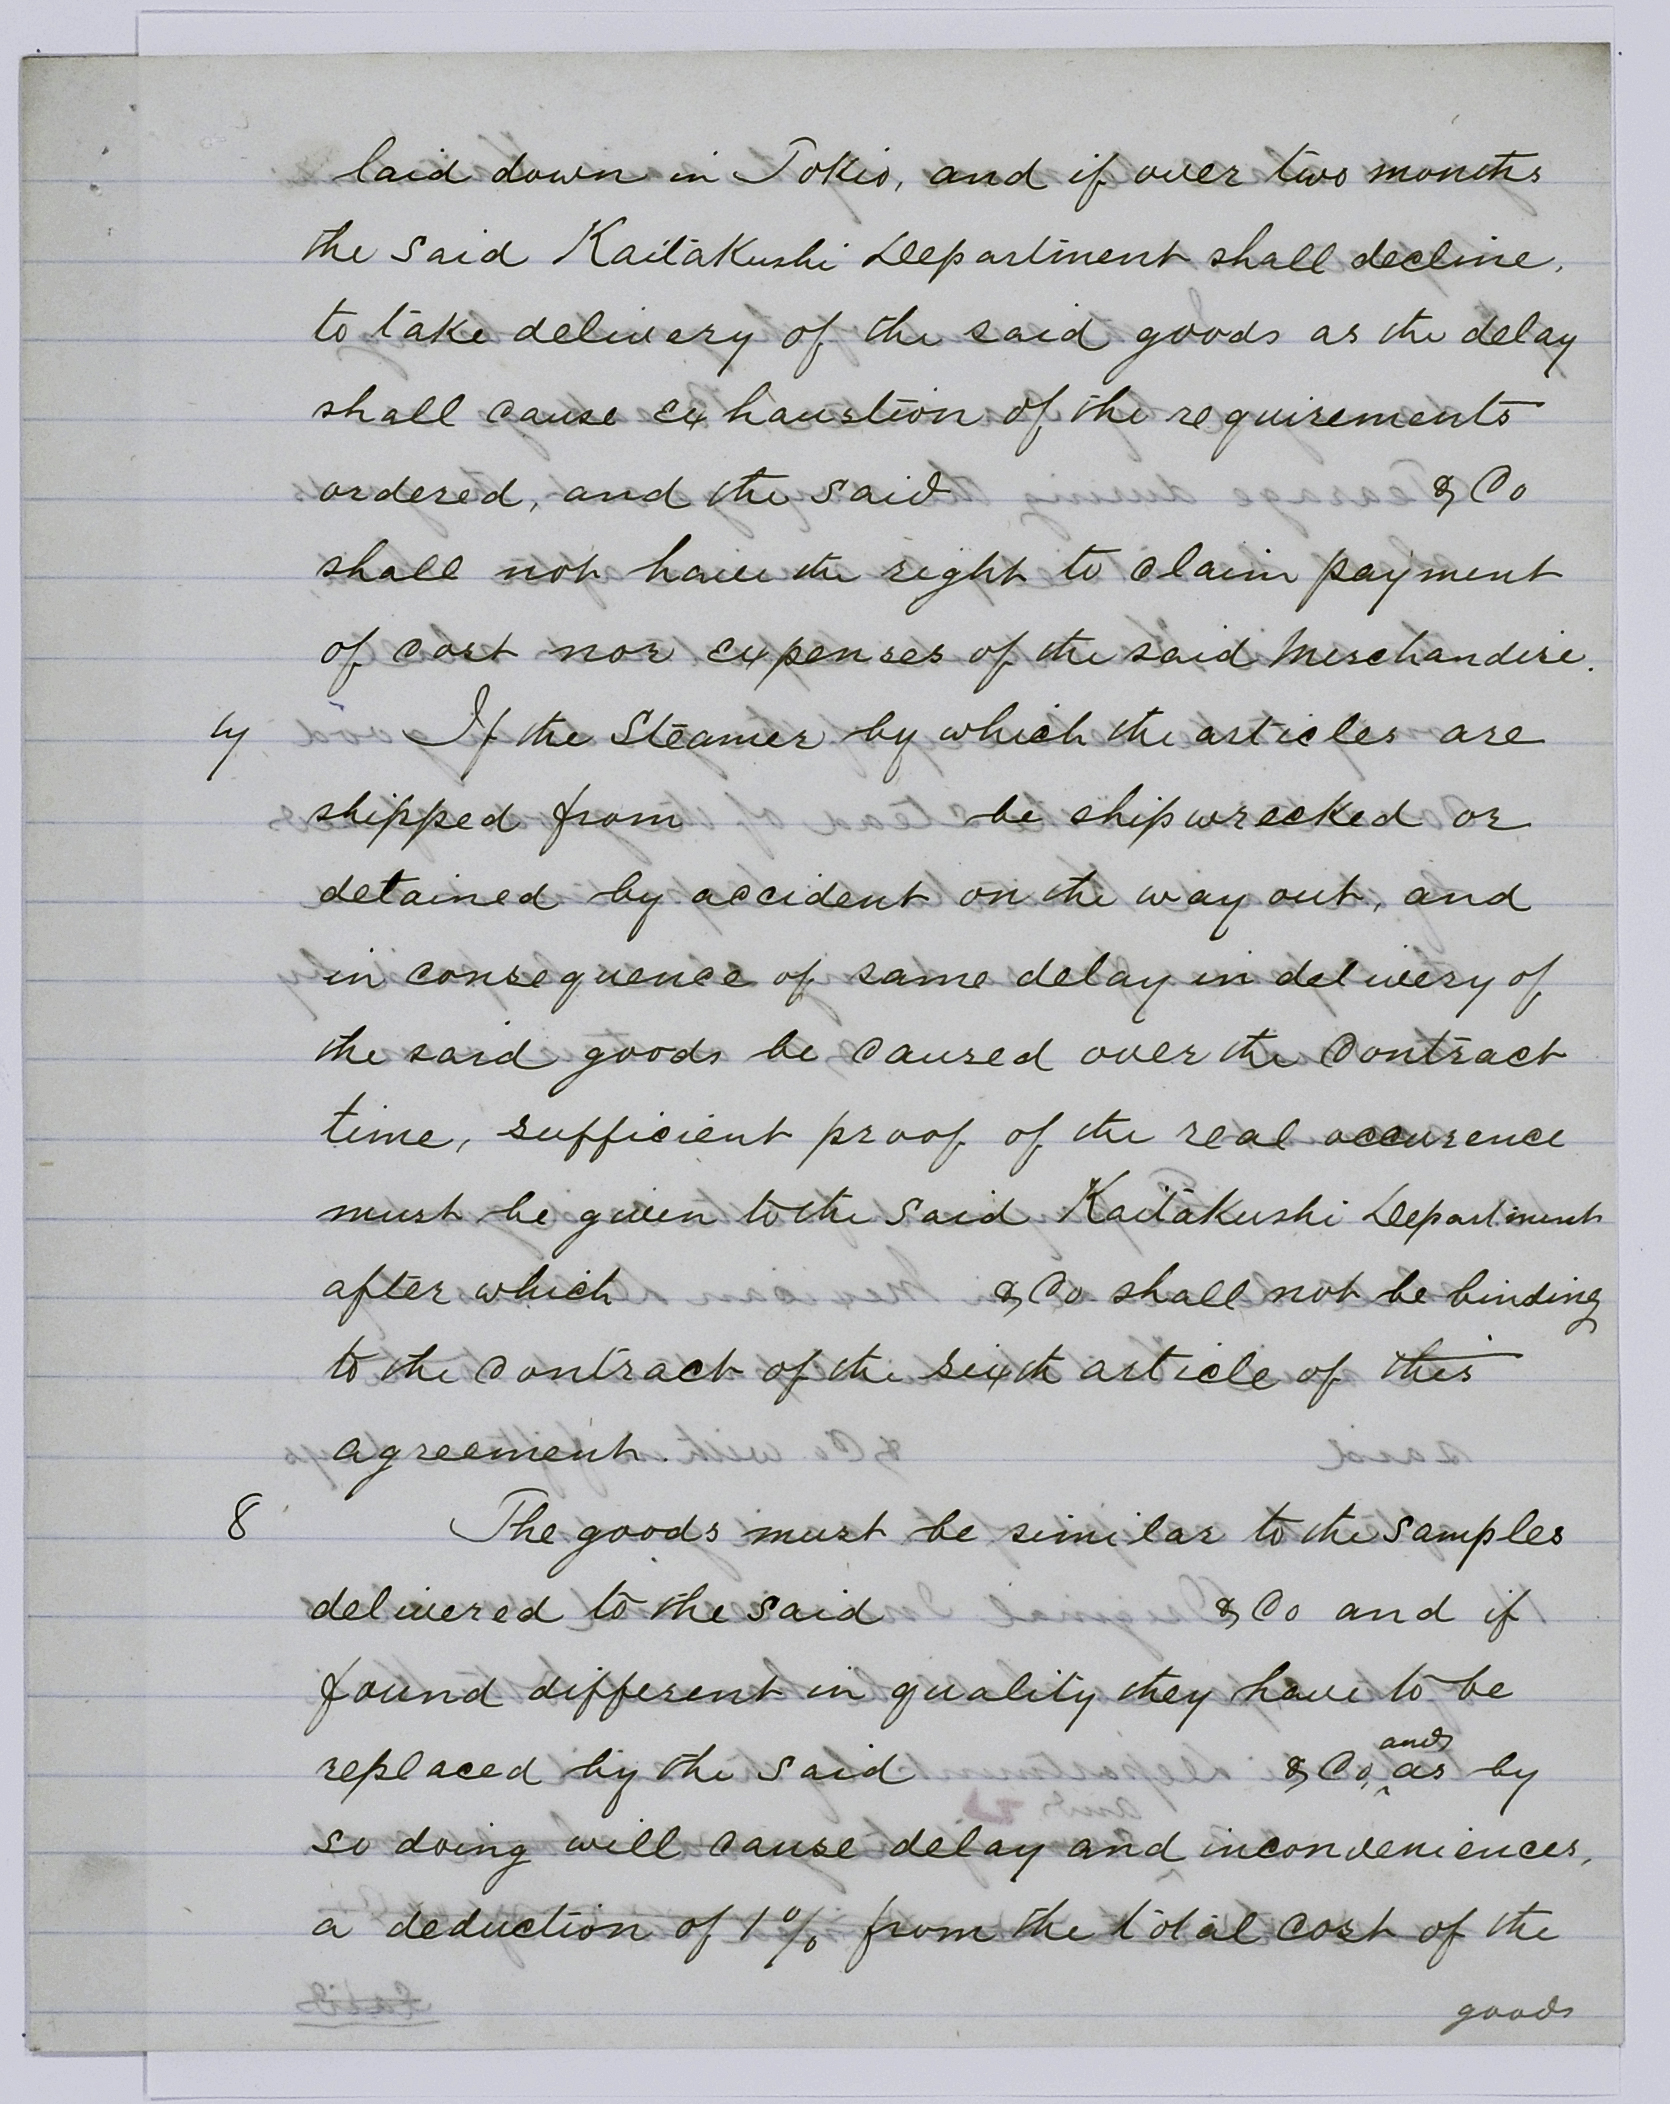 laid down in Tokio, and if over two months
the said Kaitakushi Department shall decline,
to take delivery of the said goods as the delay
shall cause exhaustion of the requirements
ordered, and the said & Co
shall not have the right to claim payment
of cost nor expenses of the said Merchandise.
7 If the Steamer by which the articles are
shipped from be shipwrecked or
detained by accident on the way out, and
in consequence of same delay in delivery of
the said goods be caused over the contract
time, sufficient proof of the real occurence
must be given to the said Kaitakushi Department
after which & Co shall not be binding
to the contract of the sixth article of this
agreement.
8 The goods must be similar to the samples
delivered to the said & Co and if
found different in quality they have to be
replaced by the said & Co, and as by
so doing will cause delay and inconveniences,
a deduction of 1% from the total cost of the
goods